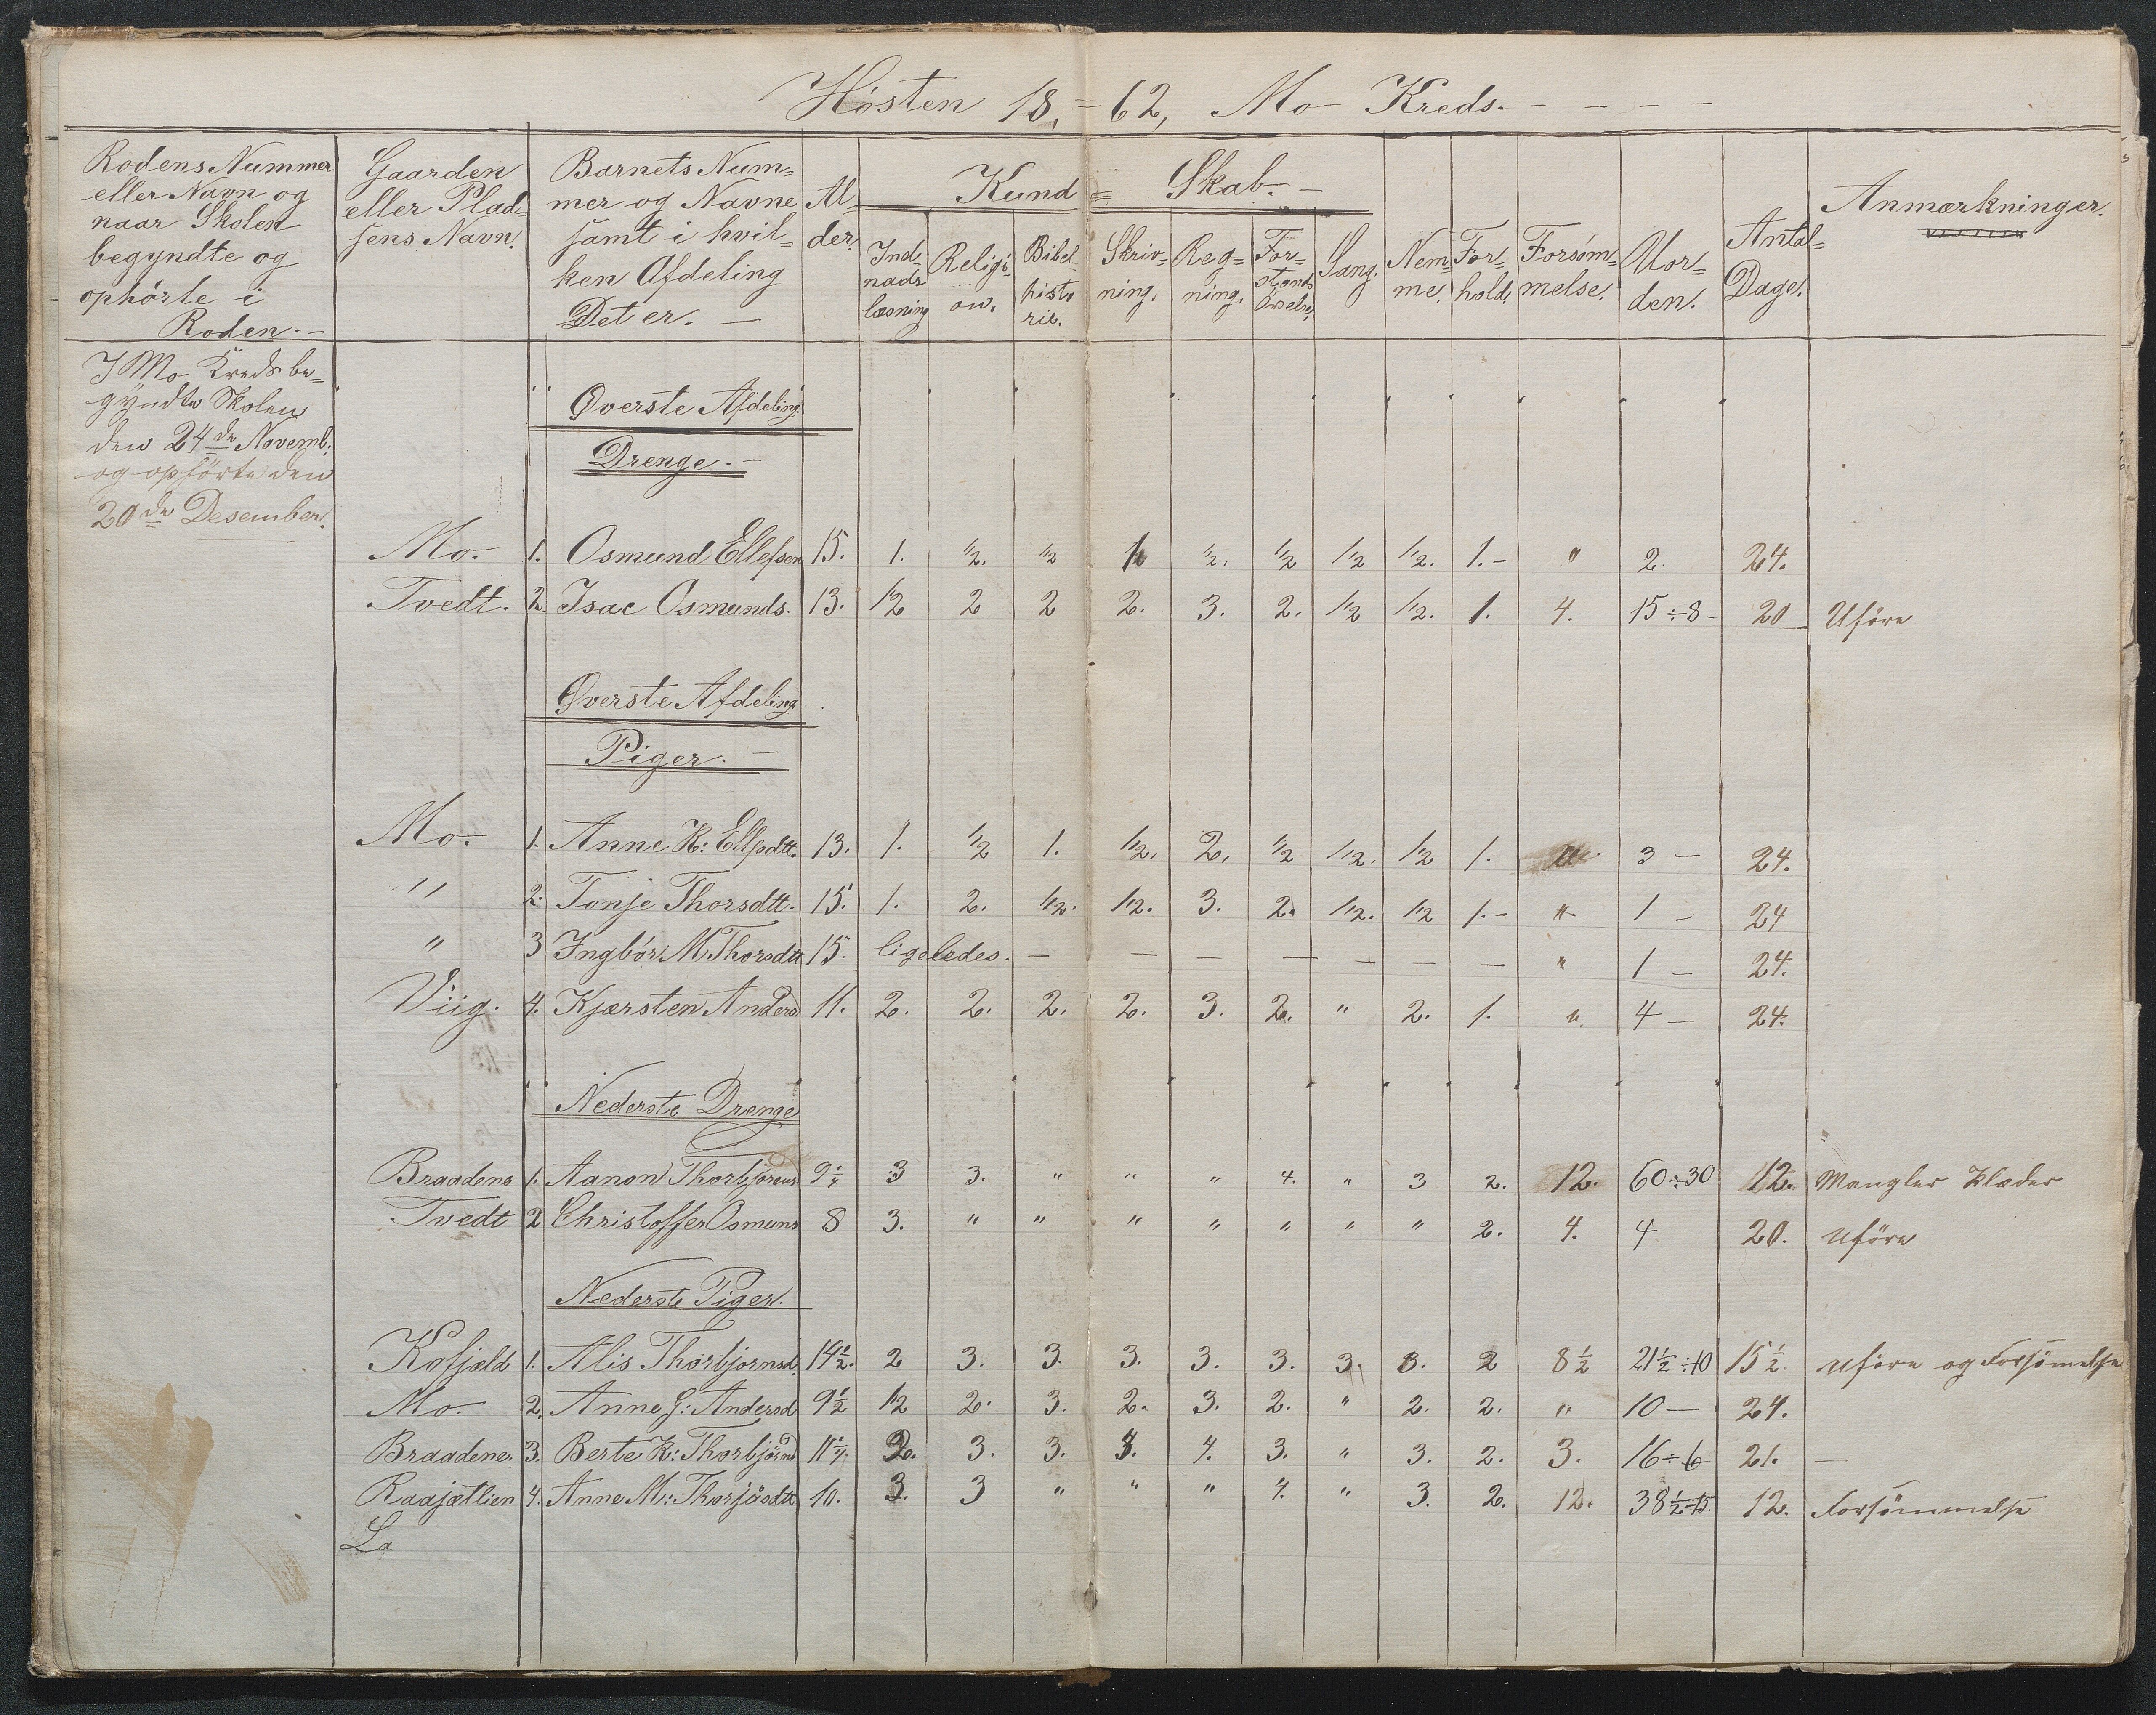 Høsten 18,=62, Mo Kreds. - - - -
Rodens Nummer eller Navn og naar Skolen begyndte og ophørte i Roden. -
Gaarden eller Pladsens Navn.
Barnets Num= mer og Navne samt i hvil= ken Afdeling Det er. -
Al= der.
Kund = Skab. -
Ind= nads læsning
Religi= on.
Bibel histo rie.
Skriv= ning.
Reg= ning.
For= stands Øvelse.
Sang.
Nem= me.
For= hold.
Forsøm= melse.
Uor= den.
Antal= Dage.
Anmærkninger.
I Mo Kreds be=
gyndte Skolen
den 24de Novemb.
og ophørte den
20de Desember.
Øverste Afdeling.
Drenge. -
Mo. 1. Osmund Ellefsen 15. 1. 1/2. 1/2 1/2 1/2. 1/2 1/2 1/2. 1. - " 2. 24.
Tvedt. 2. Isac Osmunds. 13. 1/2 2 2 2. 3. 2. 1/2 1/2. 1. 4. 15÷8- 20 Uføre
Øverste Afdeling
Piger. -
Mo. 1. Anne K: Ellfsdtt. 13. 1. 1/2 1. 1/2. 2. 1/2 1/2. 1/2 1. " 3 - 24.
" 2. Tonje Thorsdtt. 15. 1. 2. 1/2. 1/2. 3. 2. 1/2. 1/2 1. - " 1 - 24
" 3 Ingbór M. Thorsdtt 15. ligeledes. - - - - - - - " 1 - 24.
Viig. 4. Kjærsten Anders 11. 2. 2. 2. 2. 3. 2. " 2. 1. " 4 - 24.
Nederste Drenge
Braadene 1. Aanon Thorbjørens 9 1/4 3 3. " " " 4. " 3 2. 12. 60÷30 12. Mangler Klæder
Tvedt 2 Christoffer Osmuns 8 3. " " " " " " " 2. 4. 4 20. Uføre
Nederste Piger.
Kofjeld 1. Alis Thorbjornsd. 14 1/2. 2 3. 3. 3. 3. 3. 3. 3. 2 8 1/2 21 1/2 ÷10 15 1/2. Uføre og Forsømelse
Mo. 2. Anne G: Andersd 9 1/2 1/2 2. 3. 2. 3. 2. " 2. 2. " 10 - 24.
Braadene. 3. Berte K: Thorbjørnd 11 1/4. 2. 3. 3. 3. 4. 3. " 3. 2. 3. 16÷6 21. -
Raajætlien 4. Anne M: Thorjøsdtt 10. 3. 3 " " " 4. " 3. 2. 12. 38 1/2 ÷15. 12. Forsømmelse
La